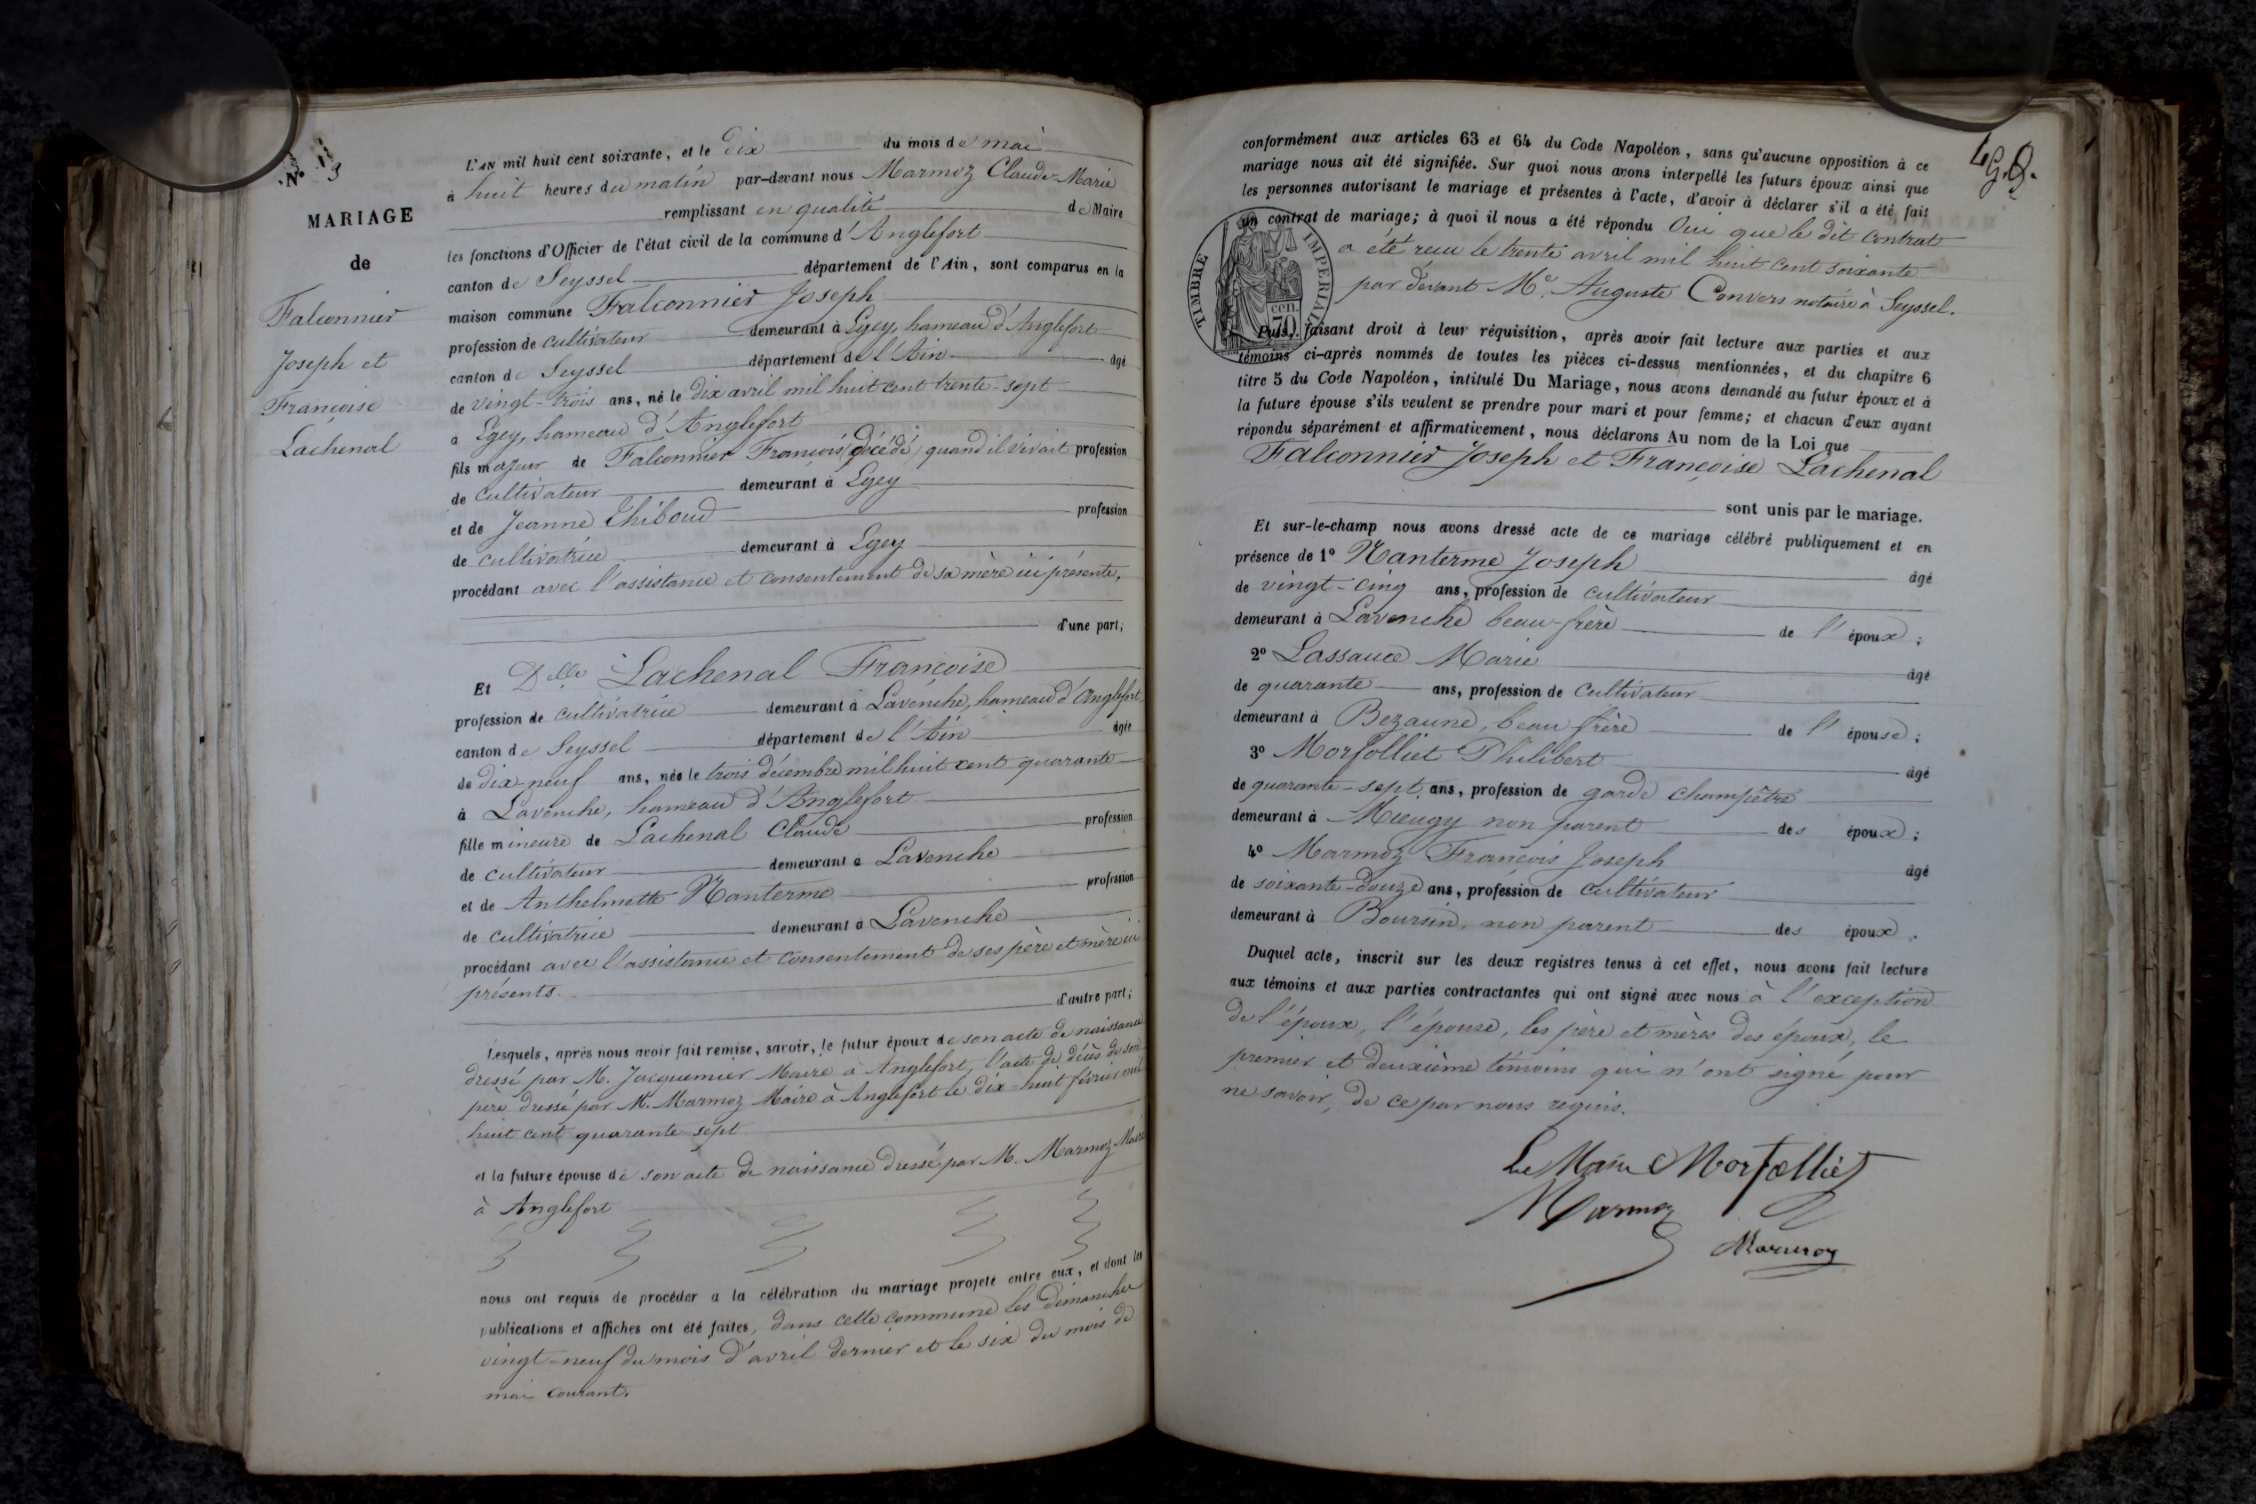 N° 13
MARIAGE
de
Falconnier
Joseph et
Françoise
Lachenal
L'AN mil huit cent soixante, et le dix du mois de mai
à huit heures du matin par-devant nous Marmoz Claude-Marie
remplissant en qualité de Maire
les fonctions d'Officier de l'état civil de la commune d'Anglefort
canton de Seyssel département de l'Ain, sont comparus en la
maison commune Falconnier Joseph
profession de cultivateur demeurant à Lgey, hameau d'Anglefort
canton de Seyssel département de l'Ain âgé
de vingt-trois ans, né le dix avril mil huit cent trente-sept
à Lgey, hameau d'Anglefort
fils majeur de Falconnier François (décédé) quand il vivait profession
de cultivateur demeurant à Lgey
et de Jeanne Thiboud profession
de cultivatrice demeurant à Lgey
procédant avec l'assistance et consentement de sa mère ici présente,
d'une part;
Et Delle Lachenal Françoise
profession de cultivatrice demeurant à Lavenche, hameau d'Anglefort
canton de Seyssel département de l'Ain âgée
de dix-neuf ans, née le trois décembre mil huit cent quarante
à Lavenche, hameau d'Anglefort
fille mineure de Lachenal Claude profession
de cultivateur demeurant à Lavenche
et de Anthelmette Nanterme profession
de cultivatrice demeurant à Lavenche
procédant avec l'assistance et consentement de ses père et mère ici
présents
d'autre part;
Lesquels, après nous avoir fait remise, savoir, le futur époux de son acte de naissance
dressé par M. Jacquemier Maire à Anglefort, l'acte de décès de son
père dressé par M. Marmoz Maire à Anglefort le dix-huit février mil
huit cent quarante sept
et la future épouse de son acte de naissance dressé par M. Marmoz Maire
à Anglefort
nous ont requis de procéder a la célébration du mariage projeté entre eux, et dont les
publications et affiches ont été faites, dans cette commune les dimanches
vingt-neuf du mois d'avril dernier et le six du mois de
mai courant.
conformément aux articles 63 et 64 du Code Napoléon, sans qu'aucune opposition à ce
mariage nous ait été signifiée. Sur quoi nous avons interpellé les futurs époux ainsi que
les personnes autorisant le mariage et présentes à l'acte, d'avoir à déclarer s'il a été fait
un contrat de mariage; à quoi il nous a été répondu Oui que le dit contrat
a été reçu le trente avril mil huit cent soixante
par devant Me. Auguste Convers notaire à Seyssel.
TIMBRE IMPERIAL
cen.
70
Puis, faisant droit à leur réquisition, après avoir fait lecture aux parties et aux
témoins ci-après nommés de toutes les pièces ci-dessus mentionnées, et du chapitre 6
titre 5 du Code Napoléon, intitulé Du Mariage, nous avons demandé au futur époux et à
la future épouse s'ils veulent se prendre pour mari et pour femme; et chacun d'eux ayant
répondu séparément et affirmativement, nous déclarons Au nom de la Loi que
Falconnier Joseph et Françoise Lachenal
sont unis par le mariage.
Et sur-le-champ nous avons dressé acte de ce mariage célébré publiquement et en
présence de 1° Nanterme Joseph âgé
de vingt-cinq ans, profession de cultivateur
demeurant à Lavenche beau-frère de l'époux;
2° Lassauce Marie âgé
de quarante ans, profession de cultivateur
demeurant à Bezaune, beau frère de l'épouse;
3° Morfolliet Philibert âgé
de quarante-sept ans, profession de garde champêtre
demeurant à Mieugy non parent des époux;
4° Marmoz François Joseph âgé
de soixante-douze ans, profession de cultivateur
demeurant à Boursin, non parent des époux.
Duquel acte, inscrit sur les deux registres tenus à cet effet, nous avons fait lecture
aux témoins et aux parties contractantes qui ont signé avec nous à l'exception
de l'époux, l'épouse, les père et mères des époux, le
premier et deuxième témoins qui n'ont signé pour
ne savoir, de ce par nous requis.
Le Maire Morfolliet
Marmoz
Marmoz